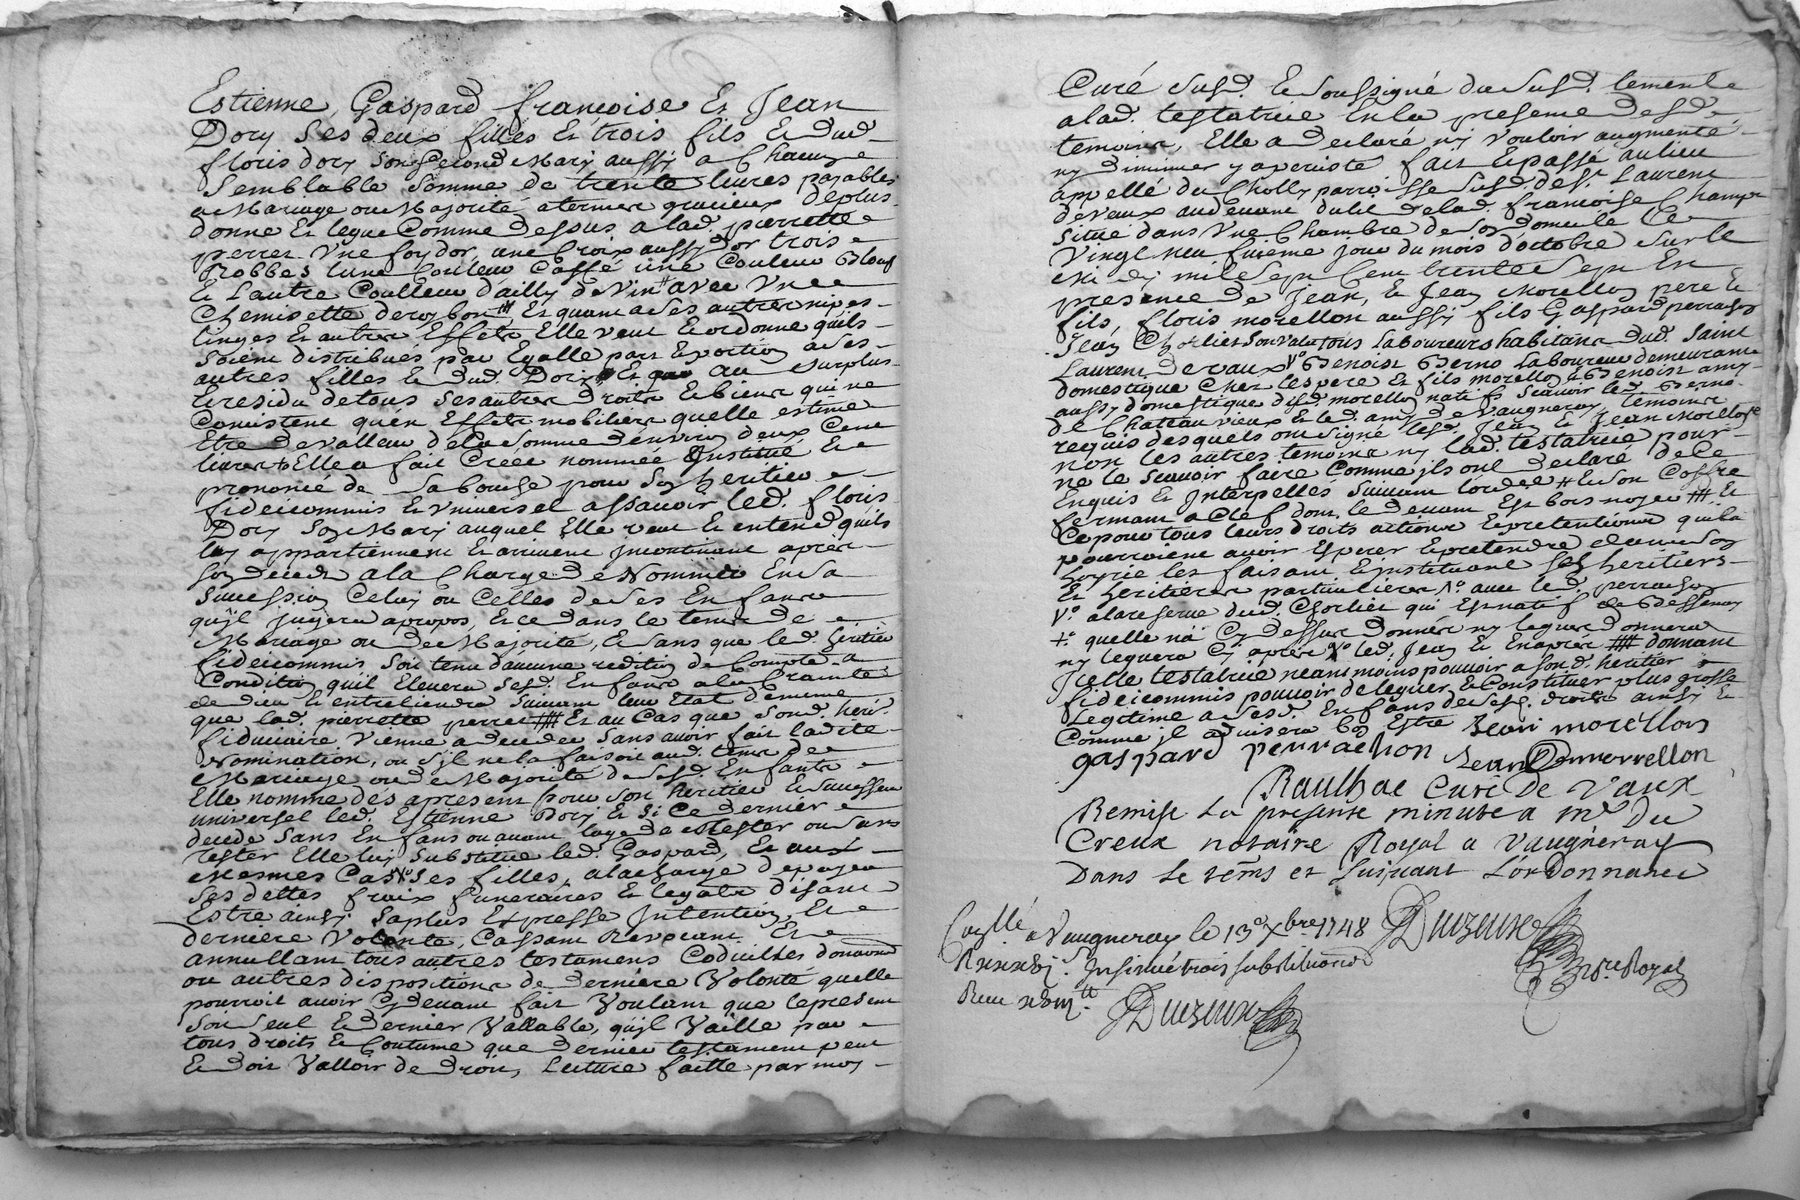 Estienne, Gaspard françoise Et Jean
Dory ses deux filles Et trois fils Et dud.
floris dory son second Mary aussy a Chacune
semblable somme de trente livres payables
a Mariage ou Majorité a termes gracieux deplus
donne Et legue Comme dessus a lad. pierrette
perret Vne foy dor, une Croix aussy dor trois
Robbes lune Couleur Caffé une Couleur
Et Lautre Coulleur d'ailly de Vin avec Vne
Chemisette # Et quant a ses autres nipes
linges Et autres Effets Elle veut Et ordonne quils
soient distribués par Egalle part Et portion a ses
autres filles Et dud. Dory Et au surplus
Le residu de tous ses autres droits Et biens qui ne
Consistent quen Effets mobiliers quelle estime
Etre de valleur de la somme denviron deux Cent
livres + Elle a fait Créé nommée Institué Et
prononcé de sa bouche pour son heritier
fideicommis Et Vniversel assavoir led. floris
Dory son Mary auquel Elle veut Et entend quils
luy appartiennent Et arrivent Incontinant après
son deceds a la Charge de Nommer En sa
succession Celuy ou Celles de ses Enfants
quyl jugera apropos, Et ce dans le tems de
Mariage ou de Majorité, Et sans que led. heritier
fideicommis soit tenu d'aucune reddition de Compte a
Condition quil Elevera sesd. Enfants a la Crainte
de dieu Et entretiendra suivant leur Etat de meme
que lad. pierrette perret #### Et au Cas que sond. heri.
fiduciaire vienne a deceder sans avoir fait ladite
Nomination, ou syl ne la faisoit aud. tems de
Mariage ou de Majorité de sesd. Enfants
Elle nomme dés apresent pour son héritier Et successeur
universel led. Estienne Dory Et si Ce dernier
decede sans Enfans ou avant laage de tester ou sans
tester Elle luy substitue led. Gaspard, Et aux
Mesmes Cas ses filles, a la charge de payer
ses dettes fraix funeraires Et legats disant
Estre ainsy sa plus Expresse Intention, Et
derniere Volonté, Cassant Revocant Et
annullant tous autres testamens Codicilles donations
ou autres dispositions de derniére Volonté quelle
pourroit avoir Cy devant fait Voulant que le present
soit seul Et dernier Vallable, quyl Vaille par
tous droits Et Coutume que dernier testament peut
Et doit Valloir de droit, Lecture faitte par moy
Curé susd. Et soussigné du susd. tement
a lad. testatrice En la presence desd.
temoins, Elle a declaré ny vouloir augmenté
ny diminuer y a persisté fait Et passé au lieu
appellé du Cholly parroisse susd. de St. Laurent
de Vaux au devant du lit de lad. francoise Champ
situé dans Vne Chambre de son domicile Ce
Vingt neufvieme jour du mois doctobre sur le
midy mil sept Cent trente sept En
presence de Jean, Et Jean Morellon pere Et
fils, floris morellon aussy fils Gaspard perrachon
Jean Chorlier son valet tous Laboureurs habitans dud. Saint
Laurent de vaux V° Benoist Laboureur demeurant
domestique Chez les pere Et fils morellon Et Benoist
aussy domestique desd. morellon natifs scavoir led.
de Chateau vieux Et led. de Vaugneray temoins
requis desquels ont signé lesd. Jean Et Jean Morellon
non les autres temoins ny lad. testatrice pour
ne le scavoir faire Comme jls ont declaré de Ce
Enquis Et Interpellés suivant lord. # Et son Coffre
fermant a Clef dont le devant Est bois noyer ### Et
Ce pour tous leurs droits actions Et pretentions quils
pourroient avoir Esperer Et pretendre dans son
hoyrie les faisant Et instituant ses heritiers
Et heritieres particulieres V° avec led. perrachon
V° a la reserve dud. Chorlier qui Est natif de Bessenay
+° quelle na Cy dessus donnés ny legués donnera
ny leguera Cy aprés V° led. Jean Et En aprés #### donnant
Jcelle testatrice neanmoins pouvoir a sond. heritier
fideicommis pouvoir deleguer Et Constituer plus grosse
Legitime a sesd. Enfans desd. droits ainsy Et
Comme jl avisera bon Estre Jean morellon
gaspard perrachon Jean morrellon
Raulhac Curé de Vaux
Remise La presente minute a Mr Du
Creux notaire Royal a Vaugneray
Dans le téms et suivant L'ordonnance
Conllé a Vaugneray le 13e Xbre 1748 Ducreux
Insinué trois substitutions
Nre Royal
Ducreux